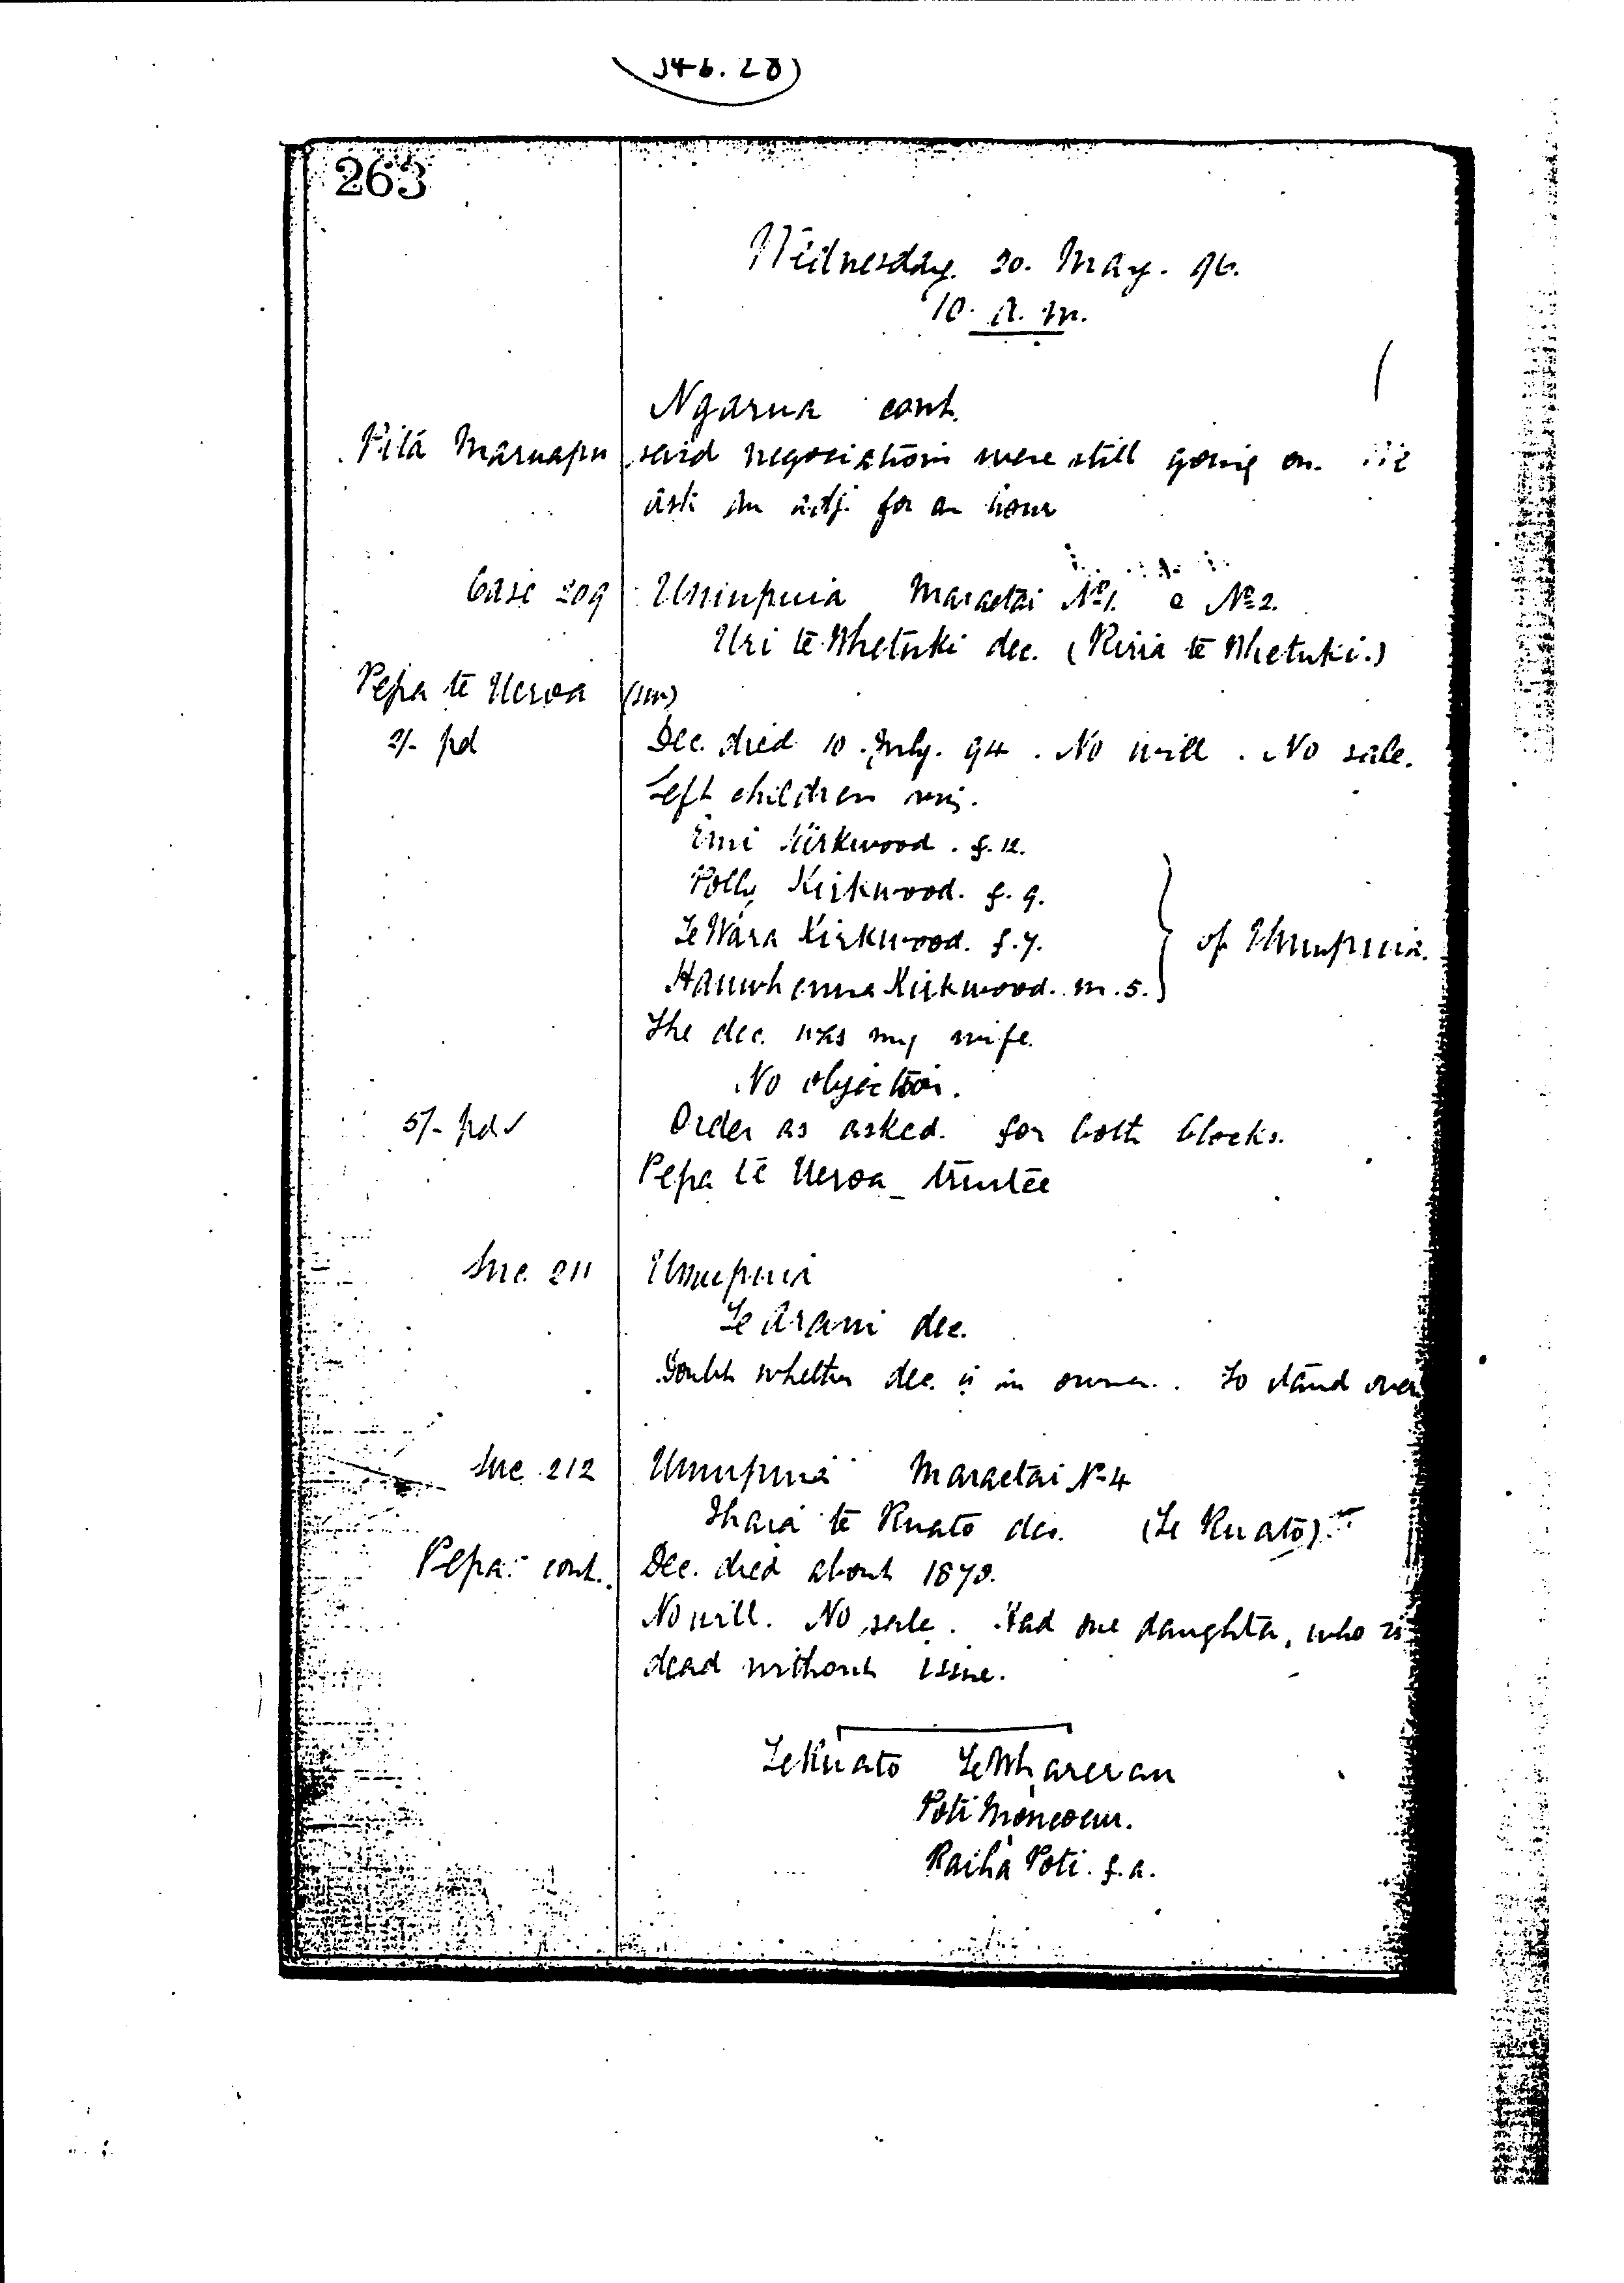 263
Wednesday. 20. May. 96.
10. a. m.
Ngarua cont.
Pita Maruapu said negociations were still going on. We
ask an adj. for an hour
Case 209 Umupuia Maraetai No 1. & No 2.
Uri te Whetuki dec. (Riria te Whetuki.)
Pepa te Ueroa (sw)
2/- pd Dec. died 10. July. 94. No will. No sale.
Left children viz.
Emi Kirkwood. f. 12.
Polly Kirkwood. f. 9.
Te Wara Kirkwood. f. 7.
Kirkwood. m. 5. } of Umupuia.
The dec. was my wife.
No objection.
5/- pd ✓ Order as asked. for both blocks.
Pepa te Ueroa _ trustee
Suc. 211 Umupuia
Te Arani dec.
Doubt whether dec. is an owner. To stand over
Suc. 212 Umupuia Maraetai No 4
Ihaia te Ruato dec. (Te Ruato)
Pepa: cont. Dec. died about 1870.
No will. No sale. Had one daughter, who is
dead without issue.
Te Ruato Te Wharerau
Poti
Raiha Poti. f. a.